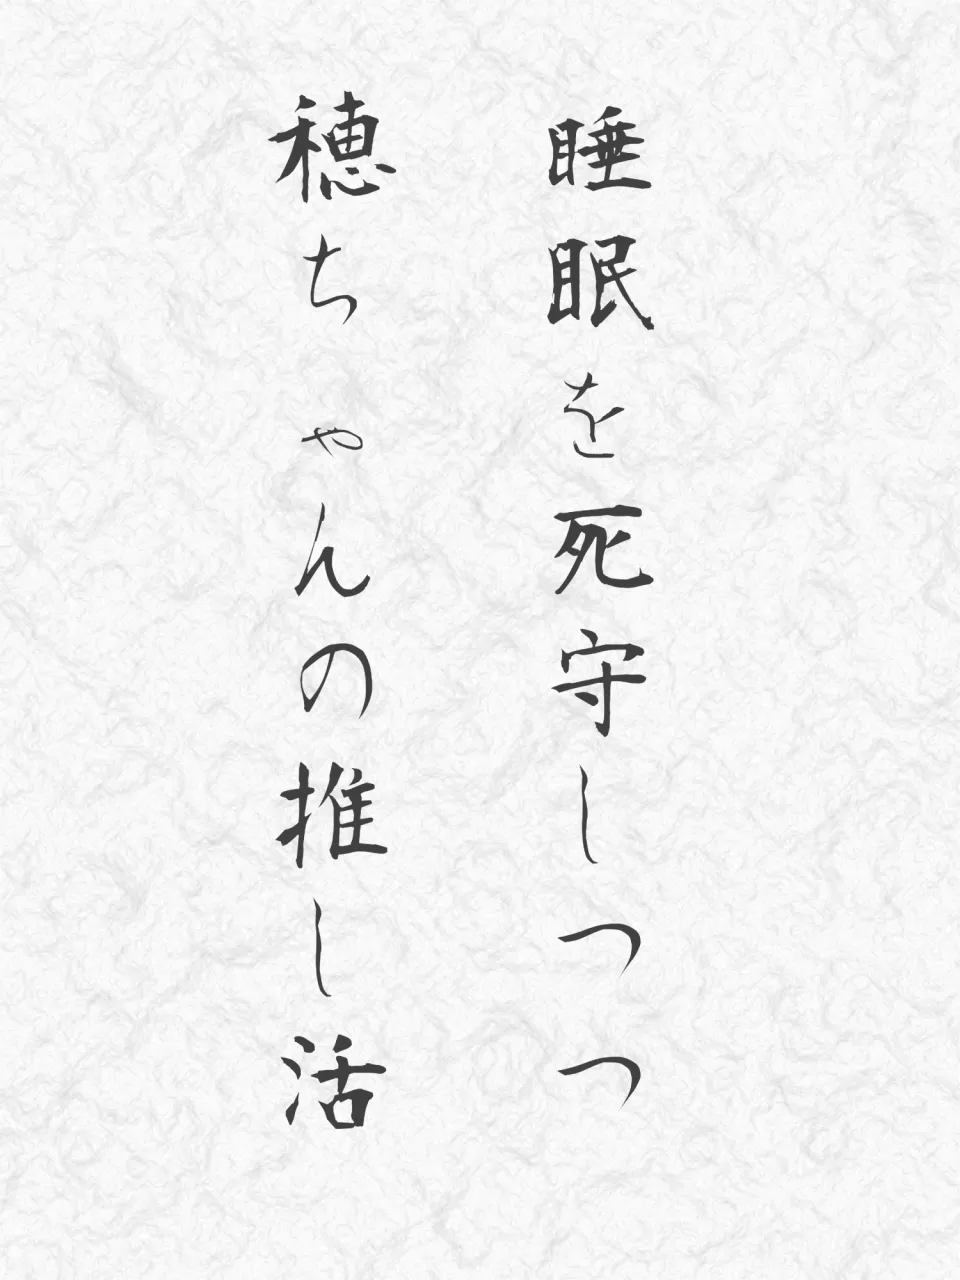 睡眠を死守しつつ
穂ちゃんの推し活